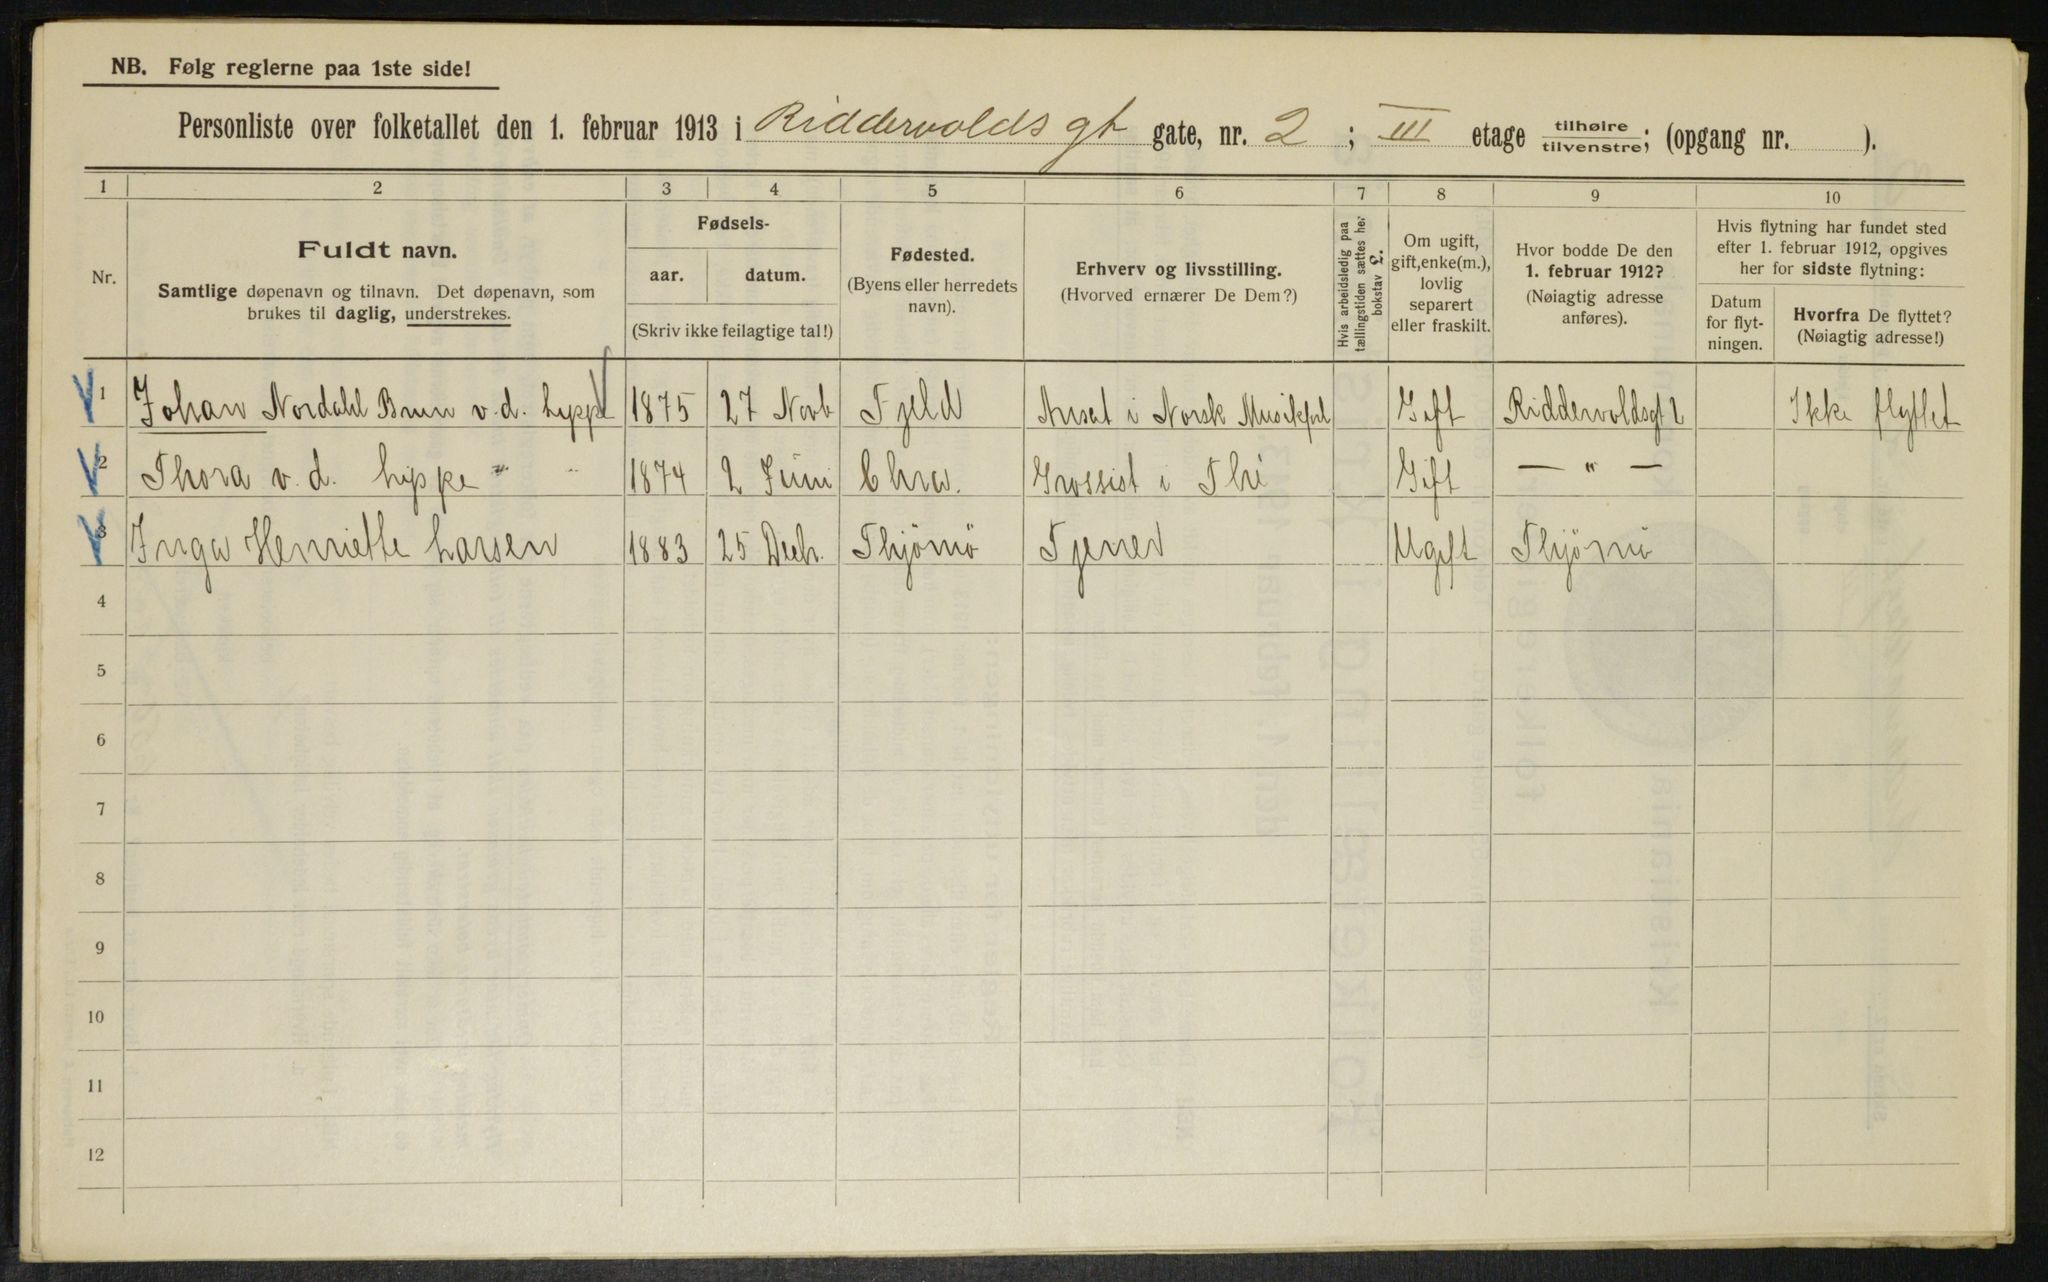 NB. Følg reglerne paa 1ste side!
Personliste over folketallet den 1. februar 1913 i Riddervolds gt gate, nr. 2 ; III etage tilhøire tilvenstre; (opgang nr. ).
1 2 3 4 5 6 7 8 9 10
Nr.
Fuldt navn.
Samtlige døpenavn og tilnavn. Det døpenavn, som
brukes til daglig, understrekes.
Fødsels-
aar. datum.
(Skriv ikke feilagtige tal!)
Fødested.
(Byens eller herredets
navn).
Erhverv og livsstilling.
(Hvorved ernærer De Dem?)
Hvis arbeidsledig paa
tællingstiden sættes her
bokstav L.
Om ugift,
gift, enke(m.),
lovlig
separert
eller fraskilt.
Hvor bodde De den
1. februar 1912?
(Nøiagtig adresse
anføres).
Hvis flytning har fundet sted
efter 1. februar 1912, opgives
her for sidste flytning:
Datum
for flyt-
ningen.
Hvorfra De flyttet?
(Nøiagtig adresse!)
1 Johan Nordahl Brun v. d. Lippe 1875 27 Novb Fjeld Ansat i Norsk Musikforl Gift Riddervoldsgt 2 Ikke flyttet
2 Thora v. d. Lippe 1874 2 Juni Chra. Grossist i Thé Gift — " —
3 Inga Henriette Larsen 1883 25 Decbr. Thjömö Tjener Ugift Thjömö
4
5
6
7
8
9
10
11
12